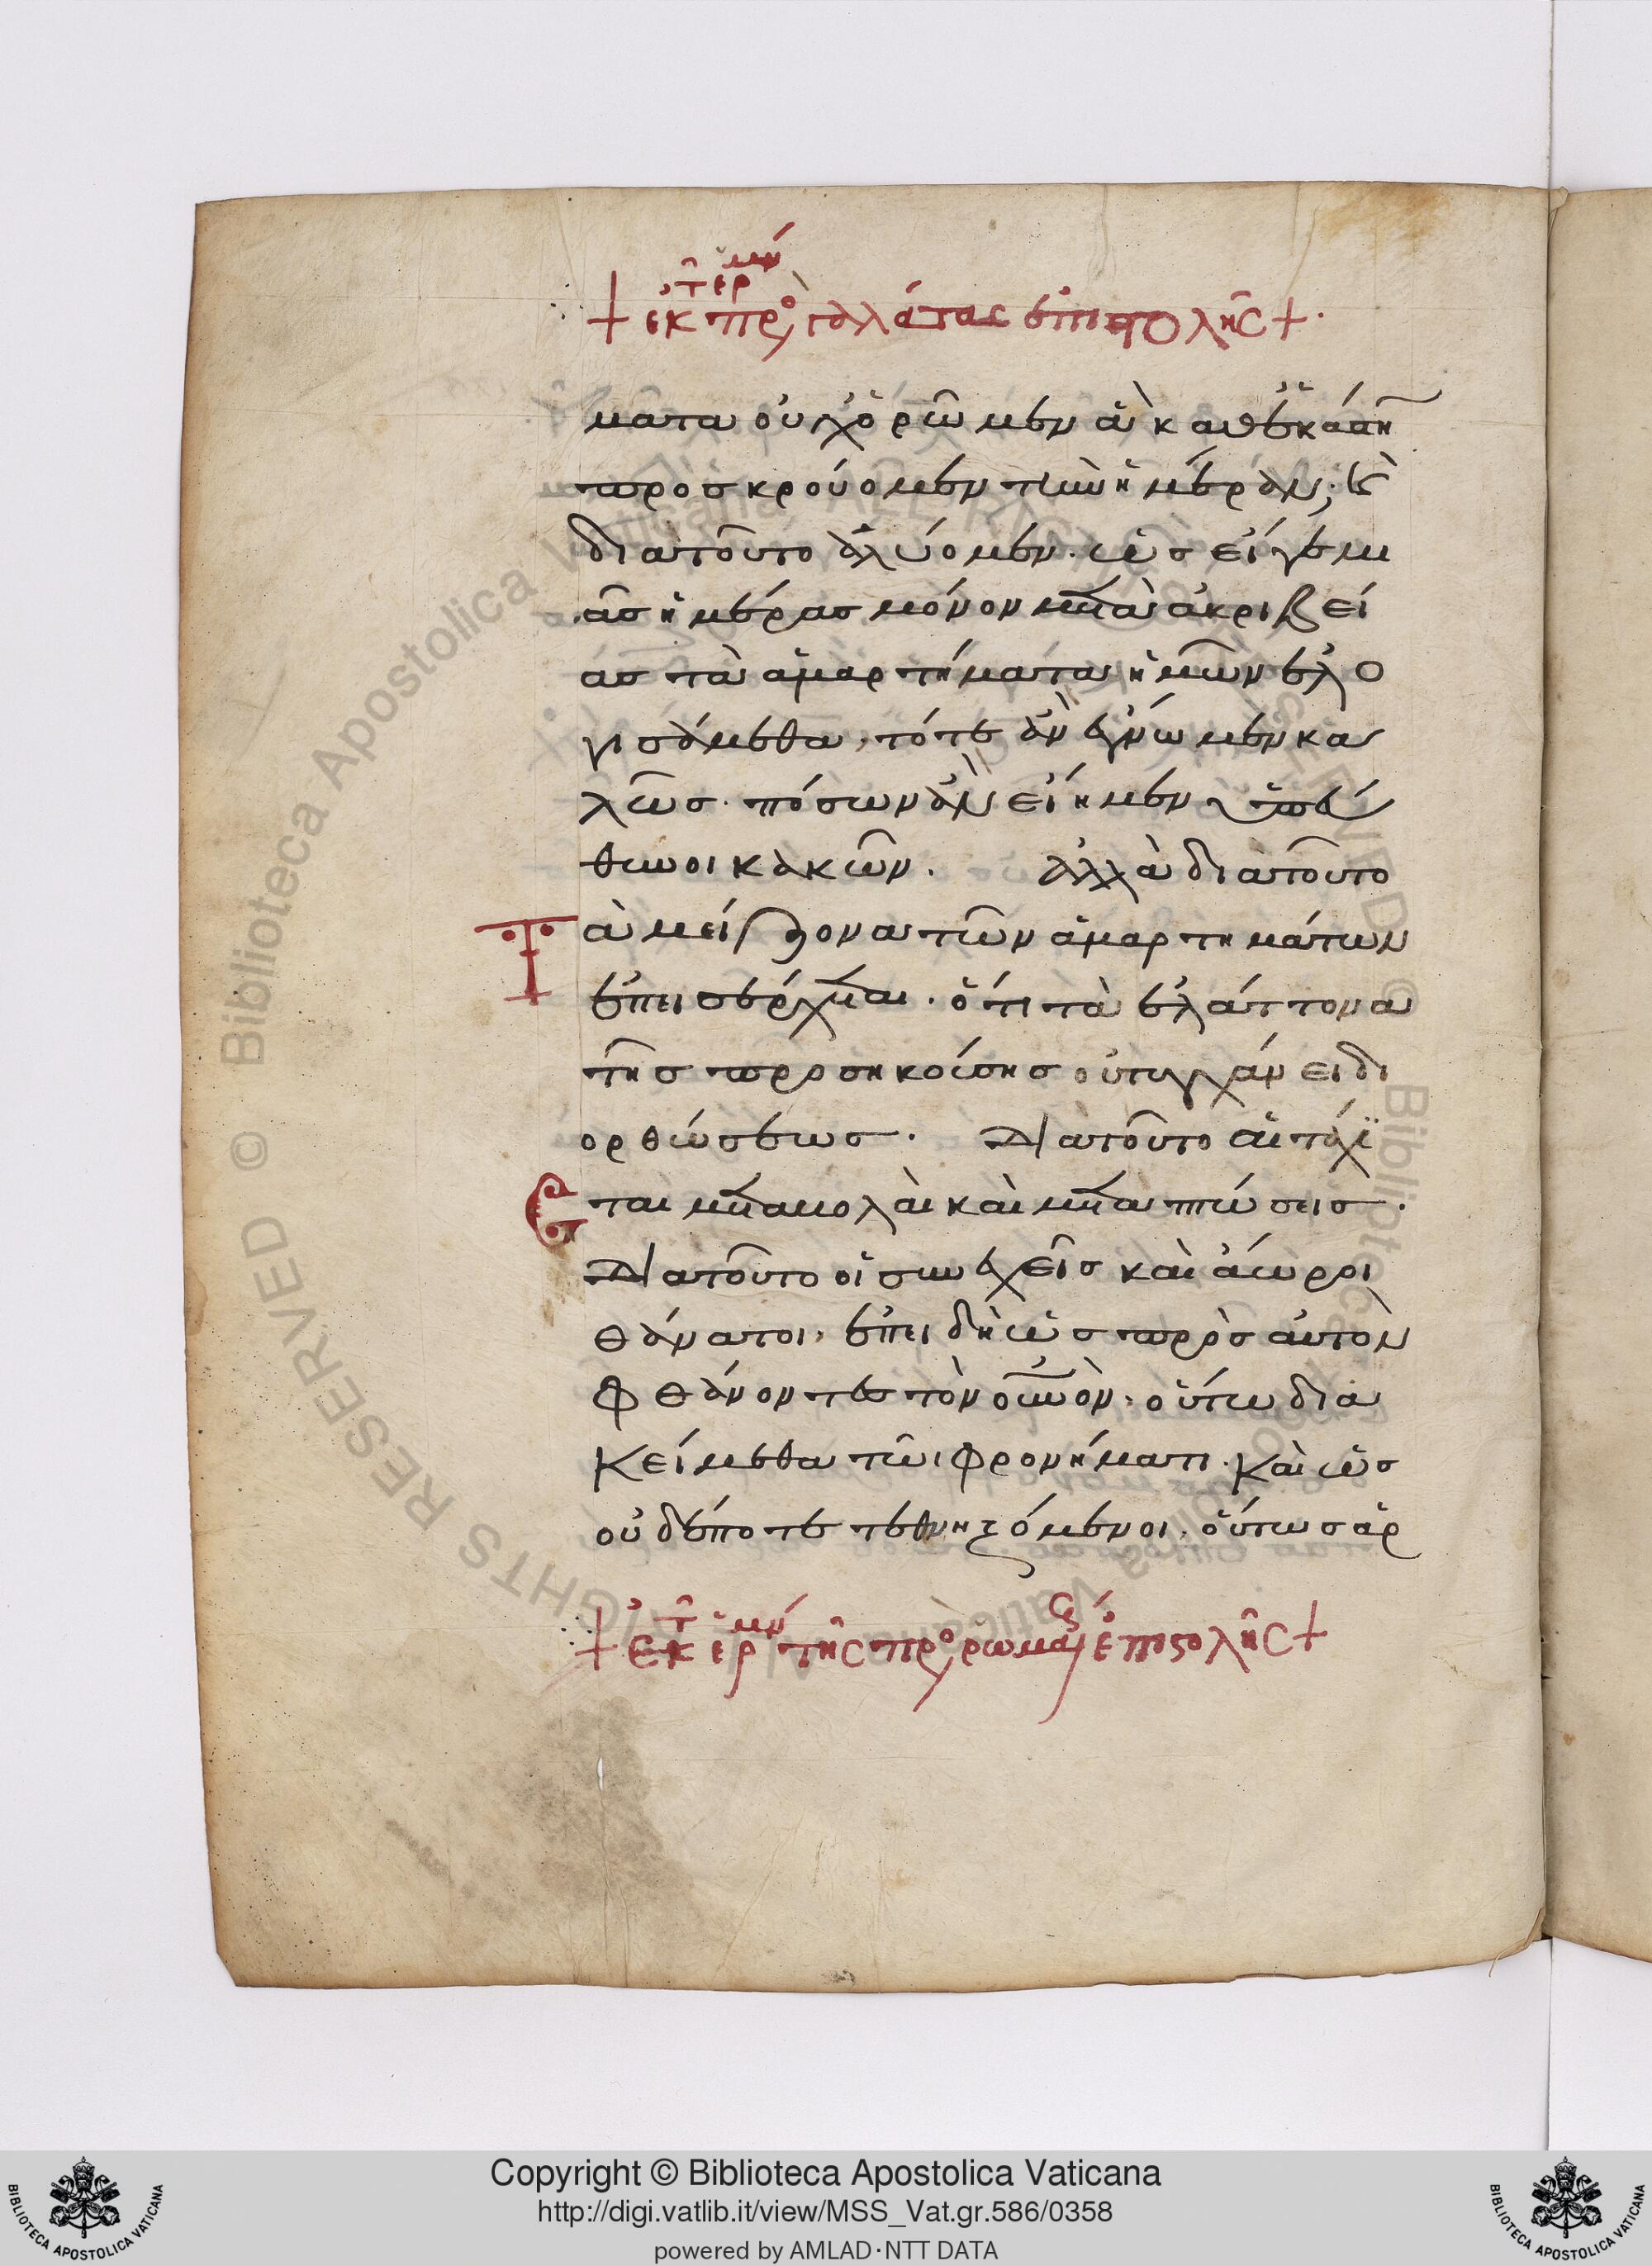 + ἐκ τ ἑρμην πρὸς γαλάτας ἐπιστολῆς +
ματα οὐχ ὁρῶμεν ἃ καθ ἑκάστην
προσκρούομεν τὴν ἡμέραν· καὶ
διατοῦτο ἀλύομεν. ὡς εἴγε μι
ᾶς ἡμέρας μόνον μετὰ ἀκριβεί
ας τὰ ἁμαρτήματα ἡμῶν ἐλο
γισάμεθα, τότε ἂν ἔγνωμεν κα
λῶς. πόσων ἂν εἴημεν ὑπεύ
θυνοι κακῶν. ἀλλὰ διατοῦτο
Τὰ μείζονα τῶν ἁμαρτημάτων
ἐπεισέρχεται. ὅτι τὰ ἐλάττονα
τῆς προσηκούσης οὐ τυγχάνει δι
ορθώσεως. Διατοῦτο αἱ τάχι
Ἐ
σται μεταβολαὶ καὶ μεταπτώσεις.
Διατοῦτο οἱ συνεχεῖς καὶ ἄωροι
θάνατοι, ἐπειδὴ ὡς πρὸς αὐτὸν
φθάνοντες τὸν οὐρανὸν, οὕτω δια
κείμεθα τῶι φρονήματι. καὶ ὡς
οὐδέποτε τεθνηξόμενοι, οὕτως ἁρ
+ ἐκ τ ἑρμην τῆς πρὸς ῥωμαίους ἐπιστολῆς +
Copyright © Biblioteca Apostolica Vaticana
http://digi.vatlib.it/view/MSS_Vat.gr.586/0358
powered by AMLAD·NTT DATA
BIBLIOTECA APOSTOLICA VATICANA
BIBLIOTECA APOSTOLICA VATICANA